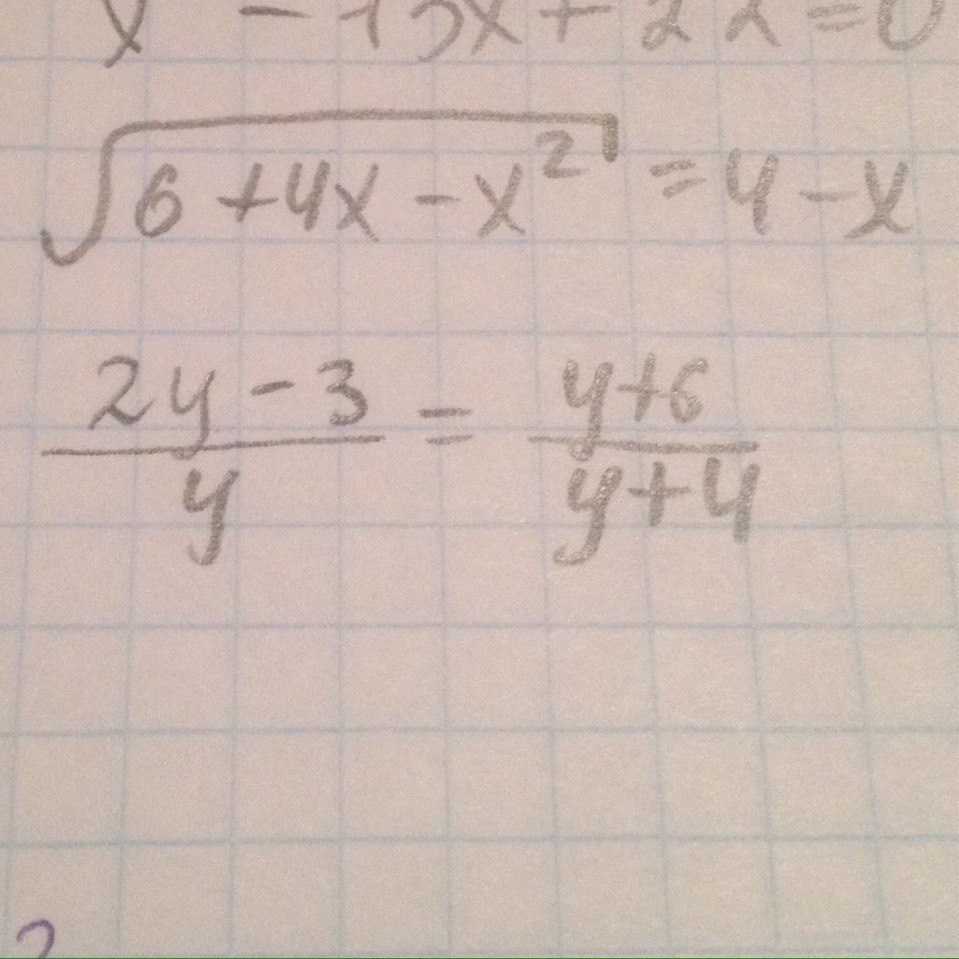 x - 13x + 22 = 0
√(6 + 4x - x²) = 4 - x
(2y - 3)/y = (y + 6)/(y + 4)
?